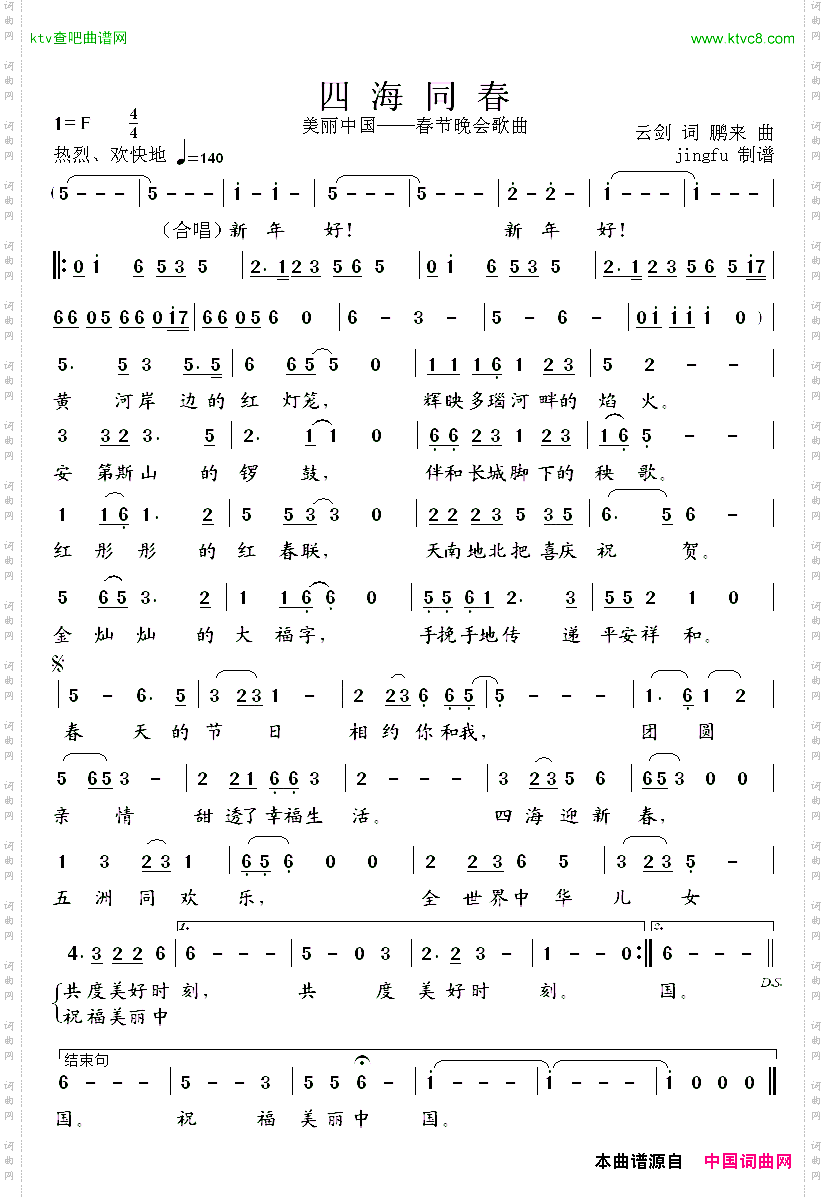 ktv查吧曲谱网 www.ktvc8.com
四海同春
1=F 4/4 美丽中国——春节晚会歌曲 云剑 词 鹏来 曲
热烈、欢快地 ♩=140 jingfu 制谱
(5 - - - | 5 - - - | i - i - | 5 - - - | 5 - - - | 2 - 2 - | i - - - | i - - - |
(合唱)新 年 好! 新 年 好!
‖: 0 i 6 5 3 5 | 2. 1 2 3 5 6 5 | 0 i 6 5 3 5 | 2. 1 2 3 5 6 5 i 7 |
6 6 0 5 6 6 0 i 7 | 6 6 0 5 6 0 | 6 - 3 - | 5 - 6 - | 0 i i i i 0 ) |
5. 5 3 5. 5 | 6 6 5 5 0 | 1 1 1 6 1 2 3 | 5 2 - - |
黄 河岸 边的红 灯笼, 辉映多瑙河畔的 焰 火。
3 3 2 3. 5 | 2. 1 1 0 | 6 6 2 3 1 2 3 | 1 6 5 - - |
安 第斯山 的锣 鼓, 伴和长城脚下的 秧 歌。
1 1 6 1. 2 | 5 5 3 3 0 | 2 2 2 3 5 3 5 | 6. 5 6 - |
红 彤 彤 的红 春联, 天南地北把喜庆 祝 贺。
5 6 5 3. 2 | 1 1 6 6 0 | 5 5 6 1 2. 3 | 5 5 2 1 0 |
金 灿 灿 的大 福字, 手挽手地传 递 平安祥 和。
5 - 6. 5 | 3 2 3 1 - | 2 2 3 6 6 5 | 5 - - - | 1. 6 1 2 |
春 天的节 日 相约你和我, 团 圆
5 6 5 3 - | 2 2 1 6 6 3 | 2 - - - | 3 2 3 5 6 | 6 5 3 0 0 |
亲 情 甜透了幸福生 活。 四海迎新春,
1 3 2 3 1 | 6 5 6 0 0 | 2 2 3 6 5 | 3 2 3 5 - |
五洲同欢 乐, 全世界中华 儿 女
1. 2.
4. 3 2 2 6 | 6 - - - | 5 - 0 3 | 2. 2 3 - | 1 - - 0 :‖ 6 - - - ‖
D.S.
共度美好时 刻, 共 度 美好时 刻。 国。
祝福美丽中
结束句
6 - - - | 5 - - 3 | 5 5 6 - | i - - - | i - - - | i 0 0 0 ‖
国。 祝 福 美丽中 国。
本曲谱源自 中国词曲网
词曲网